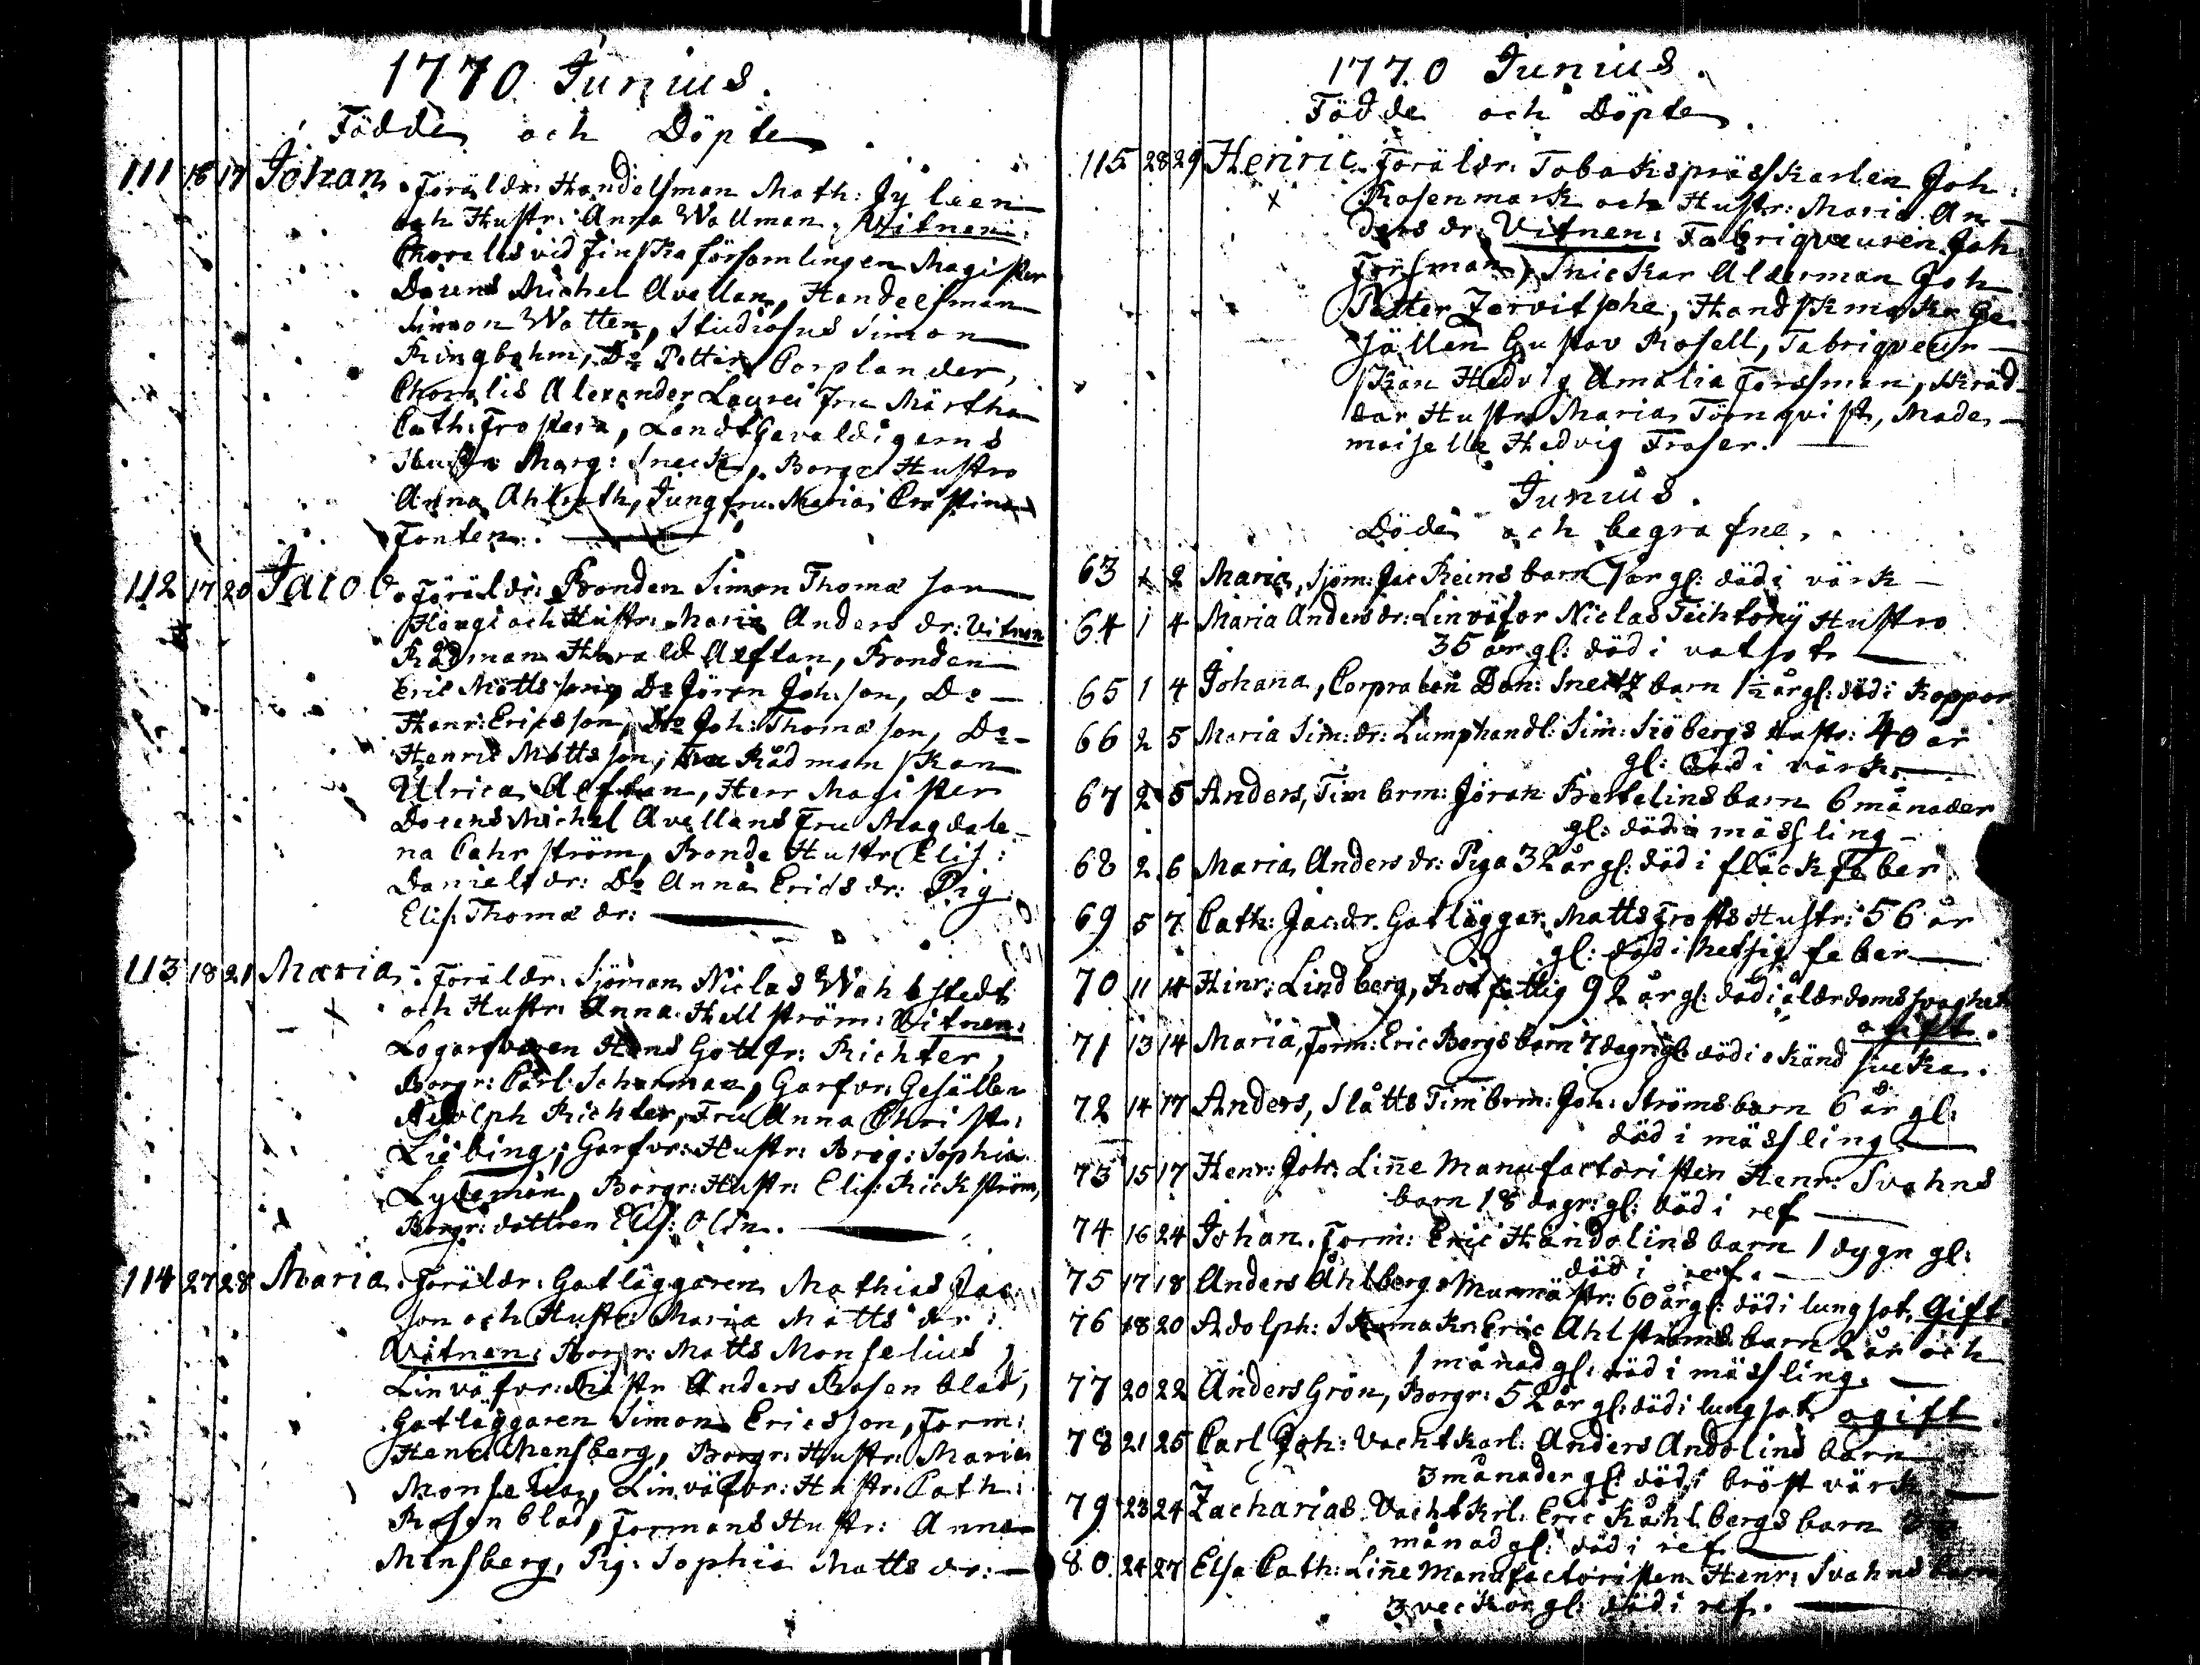 1770 Junius.
Födde och Döpte
111 18 17 Johan. Föräldr: Handelsman Math: Jyleen
och Hustr: Anna Wallman. Vitnen:
Choralis vid Finska församlingen Magister
Docens Michel Avellan, Handelsman
Simon Watten, Studiosus Simon
Ringbohm, Do Petter Porplander,
Choralis Alexander Laurei Fru Märtha
Cath: Frostera, Landtgevaldigerns
Hustru Marg: Sneck, Borgar Hustro
Anna Ahlroth, Jungfru Maria Cristina
Fonten.
112 17 20 Jacob. Föräldr: Bonden Simon Thomæ son
Haugi och Hustr: Maria Anders dr: Vitnen
Rådman Harald Alftan, Bonden
Eric Matts son, Do Jöran Joh: son, Do
Henr: Ericsson, Do Joh: Thomæ son, Do
Henric Matts son, Fru Rådmanskan
Ulrica Alftan, Herr Magister
Docens Michel Avellans Fru Magdale-
na Cahrström, Bonde Hustr: Elis:
Daniels dr: Do Anna Erics dr: Pig:
Elis: Thomæ dr:
113 18 21 Maria. Föräldr: Sjöman Niclas Wahlstedt
och Hustr: Anna Hellström: Vitnen:
Logarfvaren Hans Gottfr: Richter,
Borgr: Carl Scharman, Garfvr: Gesällen
Adolph Richter, Fru Anna Christ:
Liebing, Garfvr: Hustr: Brig: Sophia
Lydeman, Borgr: Hustr: Elis: Rickström,
Borgr: dottren Elis: Olin.
114 27 28 Maria. Föräldr: Gatläggaren Mathias Jac
son och Hustr: Maria Matts dr:
Vitnen: Borgr: Matts Monselius,
Linväfvr: Mästr Anders Rosenblad,
Gatläggaren Simon Ericsson, Form:
Henr: Mensberg, Borgr: Hustr: Maria
Monselia, Linväfvr: Hustr: Cath:
Rosenblad, Formans Hustr: Anna
Mensberg, Pig: Sophia Matts dr:
1770 Junius.
Födde och Döpte
115 28 29 Henric. Föräldr: Tobakspråsskarlen Joh:
Rosenmark och Hustr: Maria An-
ders dr: Vitnen: Fabriqveuren Joh
Forsman, Snickar Alderman Joh
Petter Zervitshe, Handskmakr Ge
sällen Gustav Rosell, Fabriqveur
skan Hedvig Amalia Forssman, Skräd
dar Hustro Maria Törnqvist, Made-
moiselle Hedvig Froser.
Junius.
Döde och begrafne.
63 1 2 Maria, Sjöm: Jac Reins barn 7 år gl: död i värk
64 1 4 Maria Anders dr: Linväfvr Niclas Techtony Hustro
35 år gl: död i vatsot
65 1 4 Johana, Corpralen Dan: Snectz barn 1½ år gl: död i koppor
66 2 5 Maria Sim: dr: Lumphandl: Sim: Siöbergs Hustr: 40 år
gl: död i värk.
67 2 5 Anders, Timbrm: Jöran Bertelins barn 6 månader
gl: död i mässling
68 2 6 Maria Anders dr: Piga 32 år gl: död i fläckfeber
69 5 7 Cath: Jac: dr. Gatläggar Matts Frosts Hustr: 56 år
gl: död i hetsig feber
70 11 14 Hinr: Lindberg, Rotfattig 92 år gl: död i ålderdomssvaghet
ogift.
71 13 14 Maria, Form: Eric Borgs barn 7 dagr gl: död i okänd siuka.
72 14 17 Anders, Slåtts Timbrm: Joh: Ströms barn 6 år gl:
död i mässling
73 15 17 Henr: Joh: Linne Manufactoristen Henr: Svahns
barn 18 dagr: gl: död i ref
74 16 24 Johan. Form: Eric Handolins barn 1 dygn gl:
död i ref.
75 17 18 Anders Åhlberg Murmästr: 60 år gl: död i lungsot. Gift.
76 18 20 Adolph: Skomakr: Eric Ahlströms barn 2 år och
1 månad gl: död i mässling.
77 20 22 Anders Grön, Borgr: 52 år gl: död i lungsot. ogift
78 21 25 Carl Joh: Vachtkarl: Anders Andolins barn
3 månader gl: död i bröstvärk
79 23 24 Zacharias. Vachtkrl: Eric Kåhlbergs barn
månad gl: död i ref.
80 24 27 Elsa Cath: Linne Manufactoristen Henr: Svahns barn
3 veckor gl: död i ref.